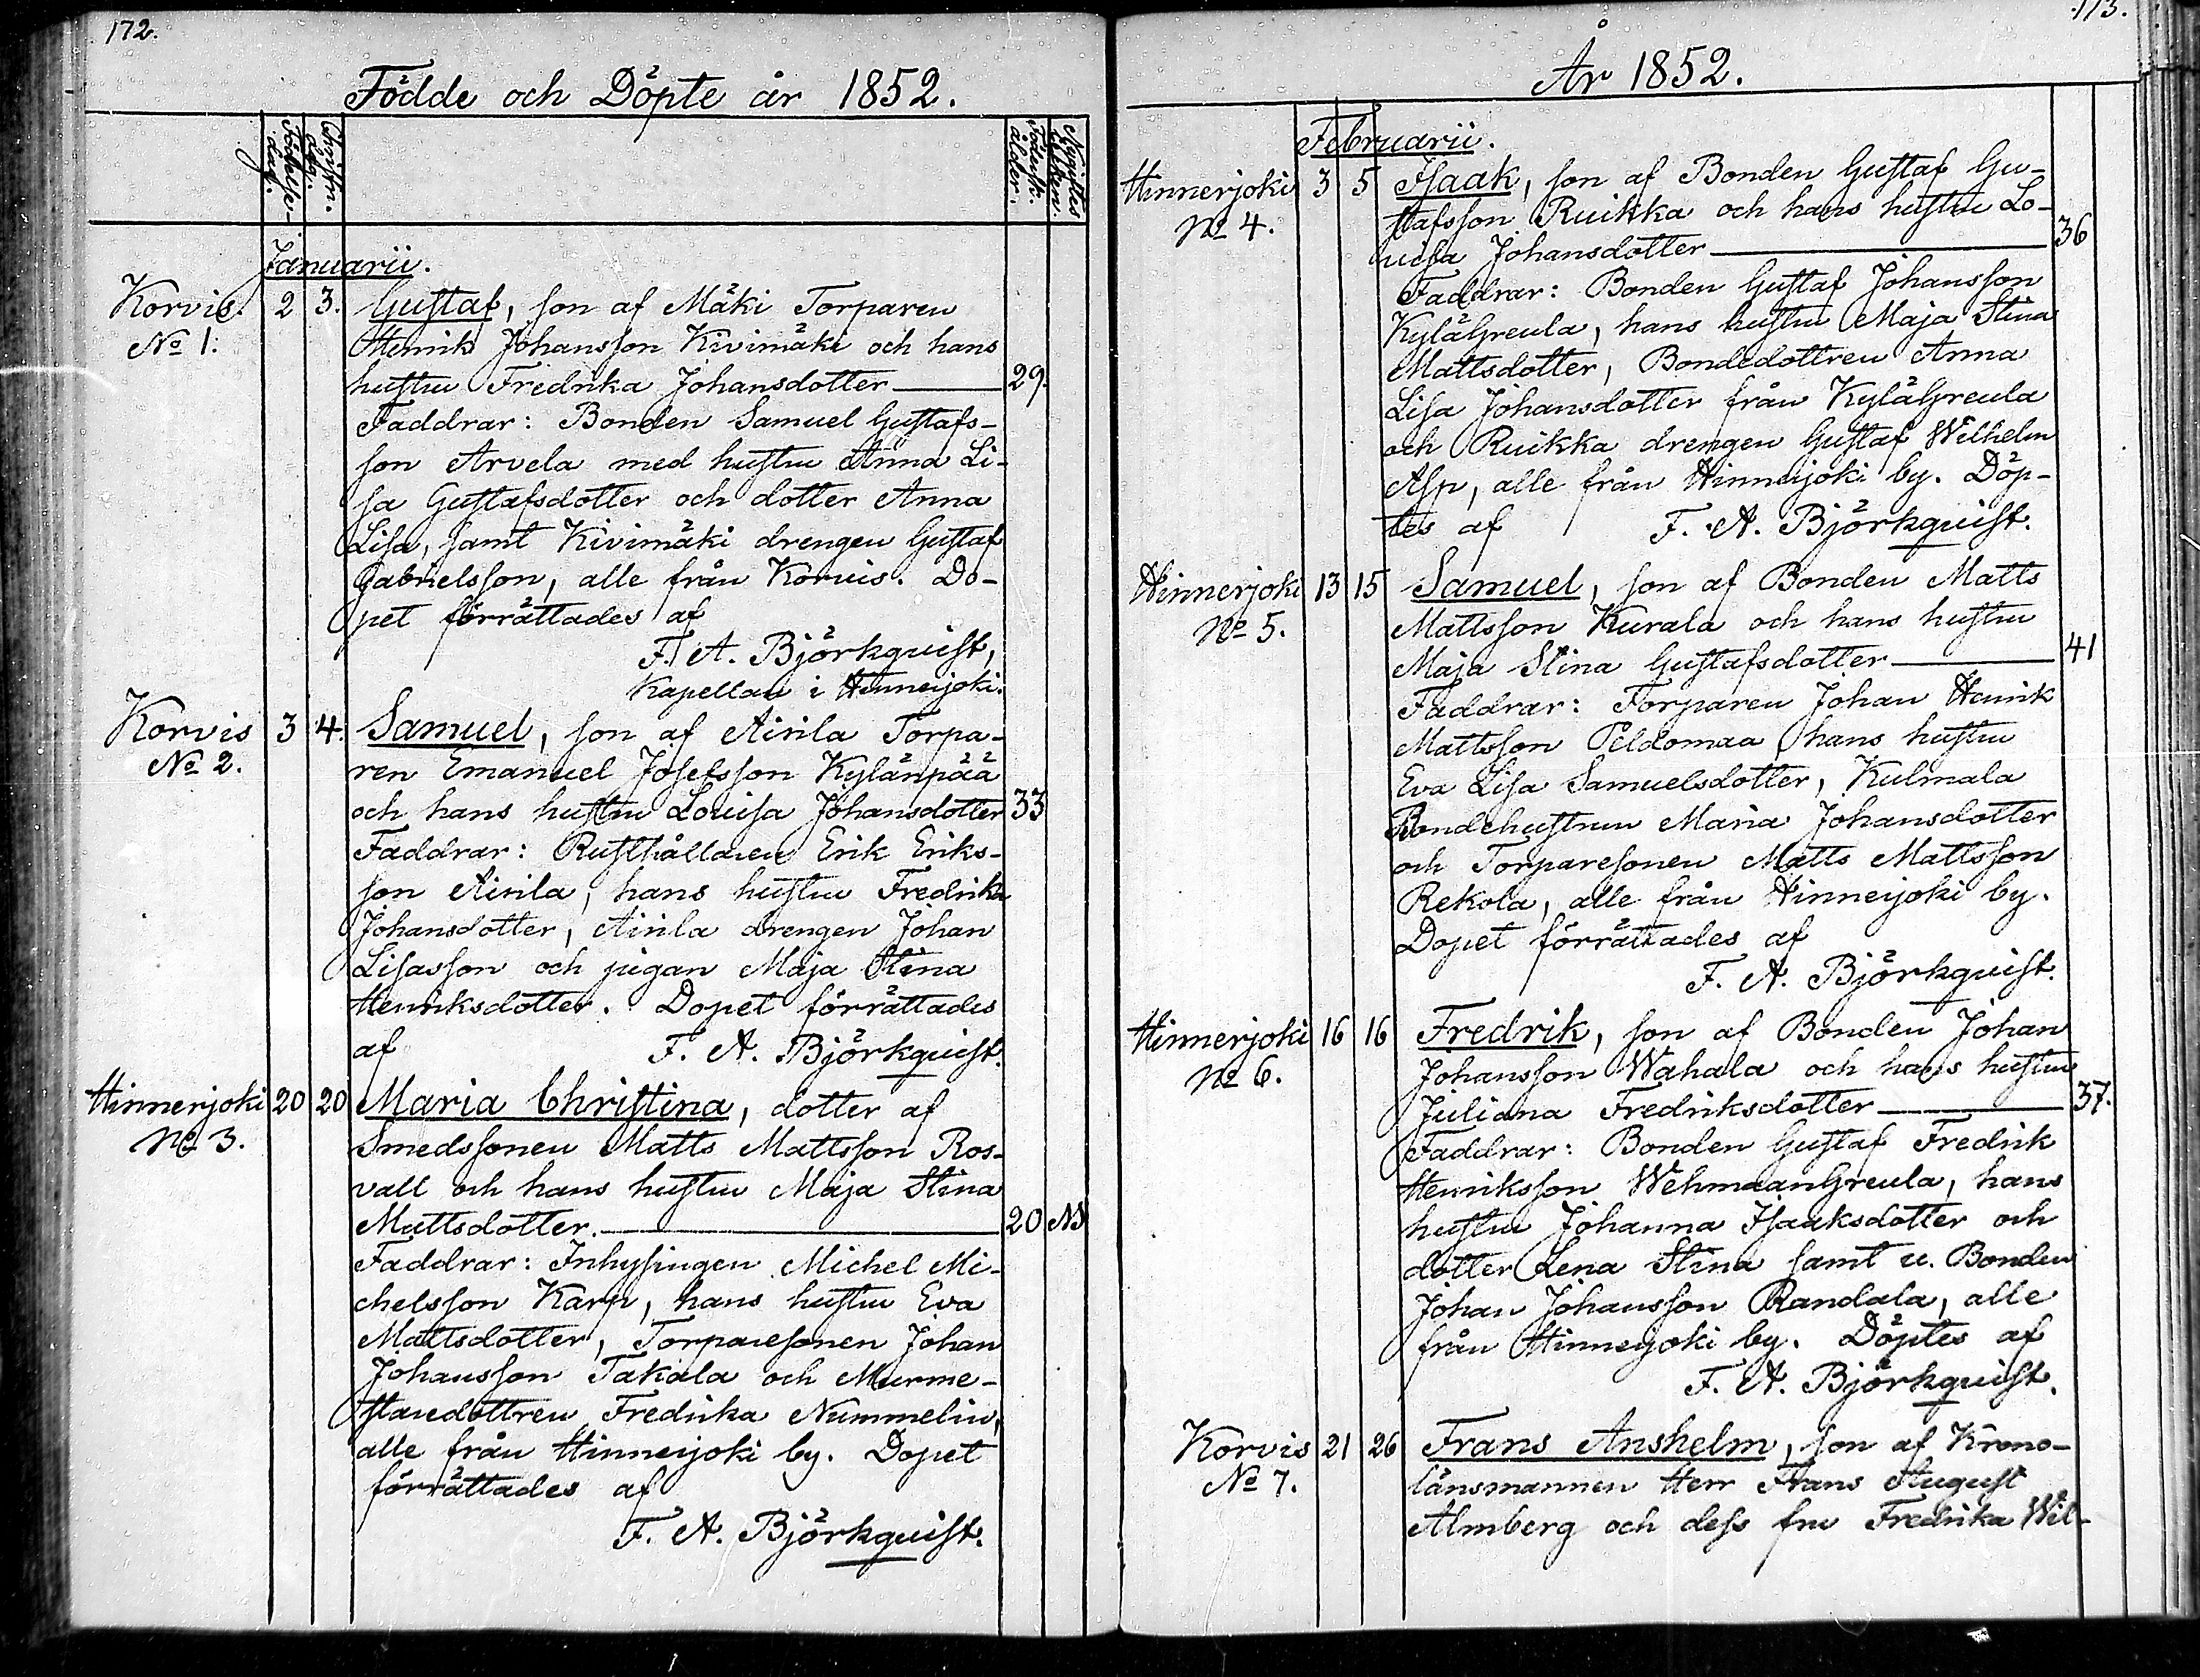 172.
Födde och Döpte år 1852.
Födelse-
dag.
Christn.
dag.
Födersk.
ålder.
Januarii.
Korvis. 2 3. Gustaf, son af Mäki Torparen
No 1. Henrik Johansson Kivimäki och hans
hustru Fredrika Johansdotter 29.
Faddrar: Bonden Samuel Gustafs-
son Arvela med hustru Anna Li-
sa Gustafsdotter och dotter Anna
Lisa, samt Kivimäki drengen Gustaf
Gabrielsson, alle från Korvis. Do-
pet förrättades af
F. A. Björkquist,
Kapellan i Hinnerjoki.
Korvis 3 4. Samuel, son af Airila Torpa-
No 2. ren Emanuel Josefsson Kylänpää
och hans hustru Lovisa Johansdotter 33
Faddrar: Rusthållaren Erik Eriks-
son Airila, hans hustru Fredrika
Johansdotter, Airila drengen Johan
Lisasson och pigan Maja Stina
Henriksdotter. Dopet förrättades
af F. A. Björkquist.
Hinnerjoki 20 20 Maria Christina, dotter af
No 3. Smedssonen Matts Mattsson Ros-
vall och hans hustru Maja Stina
Mattsdotter. 20
Faddrar: Inhysingen Michel Mi-
chelsson Karp, hans hustru Eva
Mattsdotter, Torparesonen Johan
Johansson Takala och Murme-
staredottren Fredrika Nummelin,
alle från Hinnerjoki by. Dopet
förrättades af
F. A. Björkquist.
173.
År 1852.
Februarii.
Hinnerjoki 3 5 Isaak, son af Bonden Gustaf Gu-
No 4. stafsson Ruikka och hans hustru Lo-
visa Johansdotter 36
Faddrar: Bonden Gustaf Johansson
KyläGreula, hans hustru Maja Stina
Mattsdotter, Bondedottren Anna
Lisa Johansdotter från KyläGreula
och Ruikka drengen Gustaf Wilhelm
Asp, alle från Hinnerjoki by. Döp-
tes af F. A. Björkquist.
Hinnerjoki 13 15 Samuel, son af Bonden Matts
No 5. Mattsson Kurala och hans hustru
Maja Stina Gustafsdotter 41
Faddrar: Torparen Johan Henrik
Mattsson Peldomaa hans hustru
Eva Lisa Samuelsdotter, Kulmala
Bondehustrun Maria Johansdotter
och Torparesonen Matts Mattsson
Rekola, alle från Hinnerjoki by.
Dopet förrättades af
F. A. Björkquist.
Hinnerjoki 16 16 Fredrik, son af Bonden Johan
No 6. Johansson Wahala och hans hustru
Juliana Fredriksdotter 37.
Faddrar: Bonden Gustaf Fredrik
Henriksson WehmaanGreula, hans
hustru Johanna Isaaksdotter och
dotter Lena Stina samt u. Bonden
Johan Johansson Randala, alle
från Hinnerjoki by. Döptes af
F. A. Björkquist.
Korvis 21 26 Frans Anshelm, son af Krono-
No 7. länsmannen Herr Frans August
Almberg och dess fru Fredrika Wil-